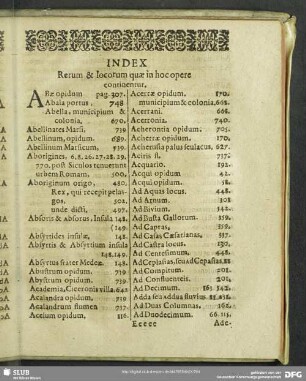 INDEX
Rerum & locorum quæ in hoc opere
continentur.
ARæ opidum pag. 307.
Abaia portus. 748
Abella, municipium &
colonia, 670.
Abellinates Marsi. 719
Abellinum, opidum. 689.
Abellinum Marsicum. 719.
Aborigines. 6.8.26.27.28.29.
770. post Siculos tenuerunt
urbem Romam. 500.
Aboriginum origo, 480.
Rex, qui recepit pelas-
gos. 502.
unde dicti. 497.
Absoris & absorus. Insula 148.
(149.
Absyrtides insulæ, 148.
Absyrtis & Absyrtium insula
148.149.
Absyrtus frater Medeæ 148.
Abustrum opidum. 719
Abystrum opidum. 719
Academia, Ciceronis villa. 642
Acalandra opidum. 719
Acalandrum flumen 717.
Acelum opidum. 116.
Acerræ opidum. 170.
municipium & colonia. 668.
Acerrani. 668.
Acerronia. 740.
Acherontia opidum. 705.
Acherræ opidum. 170.
Acherusia palus seu lacus. 627.
Aciris fl. 717.
Acquario. 292.
Acqui opidum 42.
Acqui opidum. 58.
Ad Aquas. 448.
Ad Arnum. 108
Ad Bivium. 542.
Ad Busta Gallorum. 359.
Ad Capras. 259.
Ad Casas Cæsarianas. 557.
Ad Castra locus. 130.
Ad Centesimum. 448.
Ad Cepasias, seu ad Cepasias. 88
Ad Compitum. 208.
Ad Confluentes. 201.
Ad Decimum. 161. 542.
Adda seu Addus fluvius.
Ad duas Columnas. 162.
Ad Duodecimum. 66.115.
Eeeee Ade-
SLUB
DFG